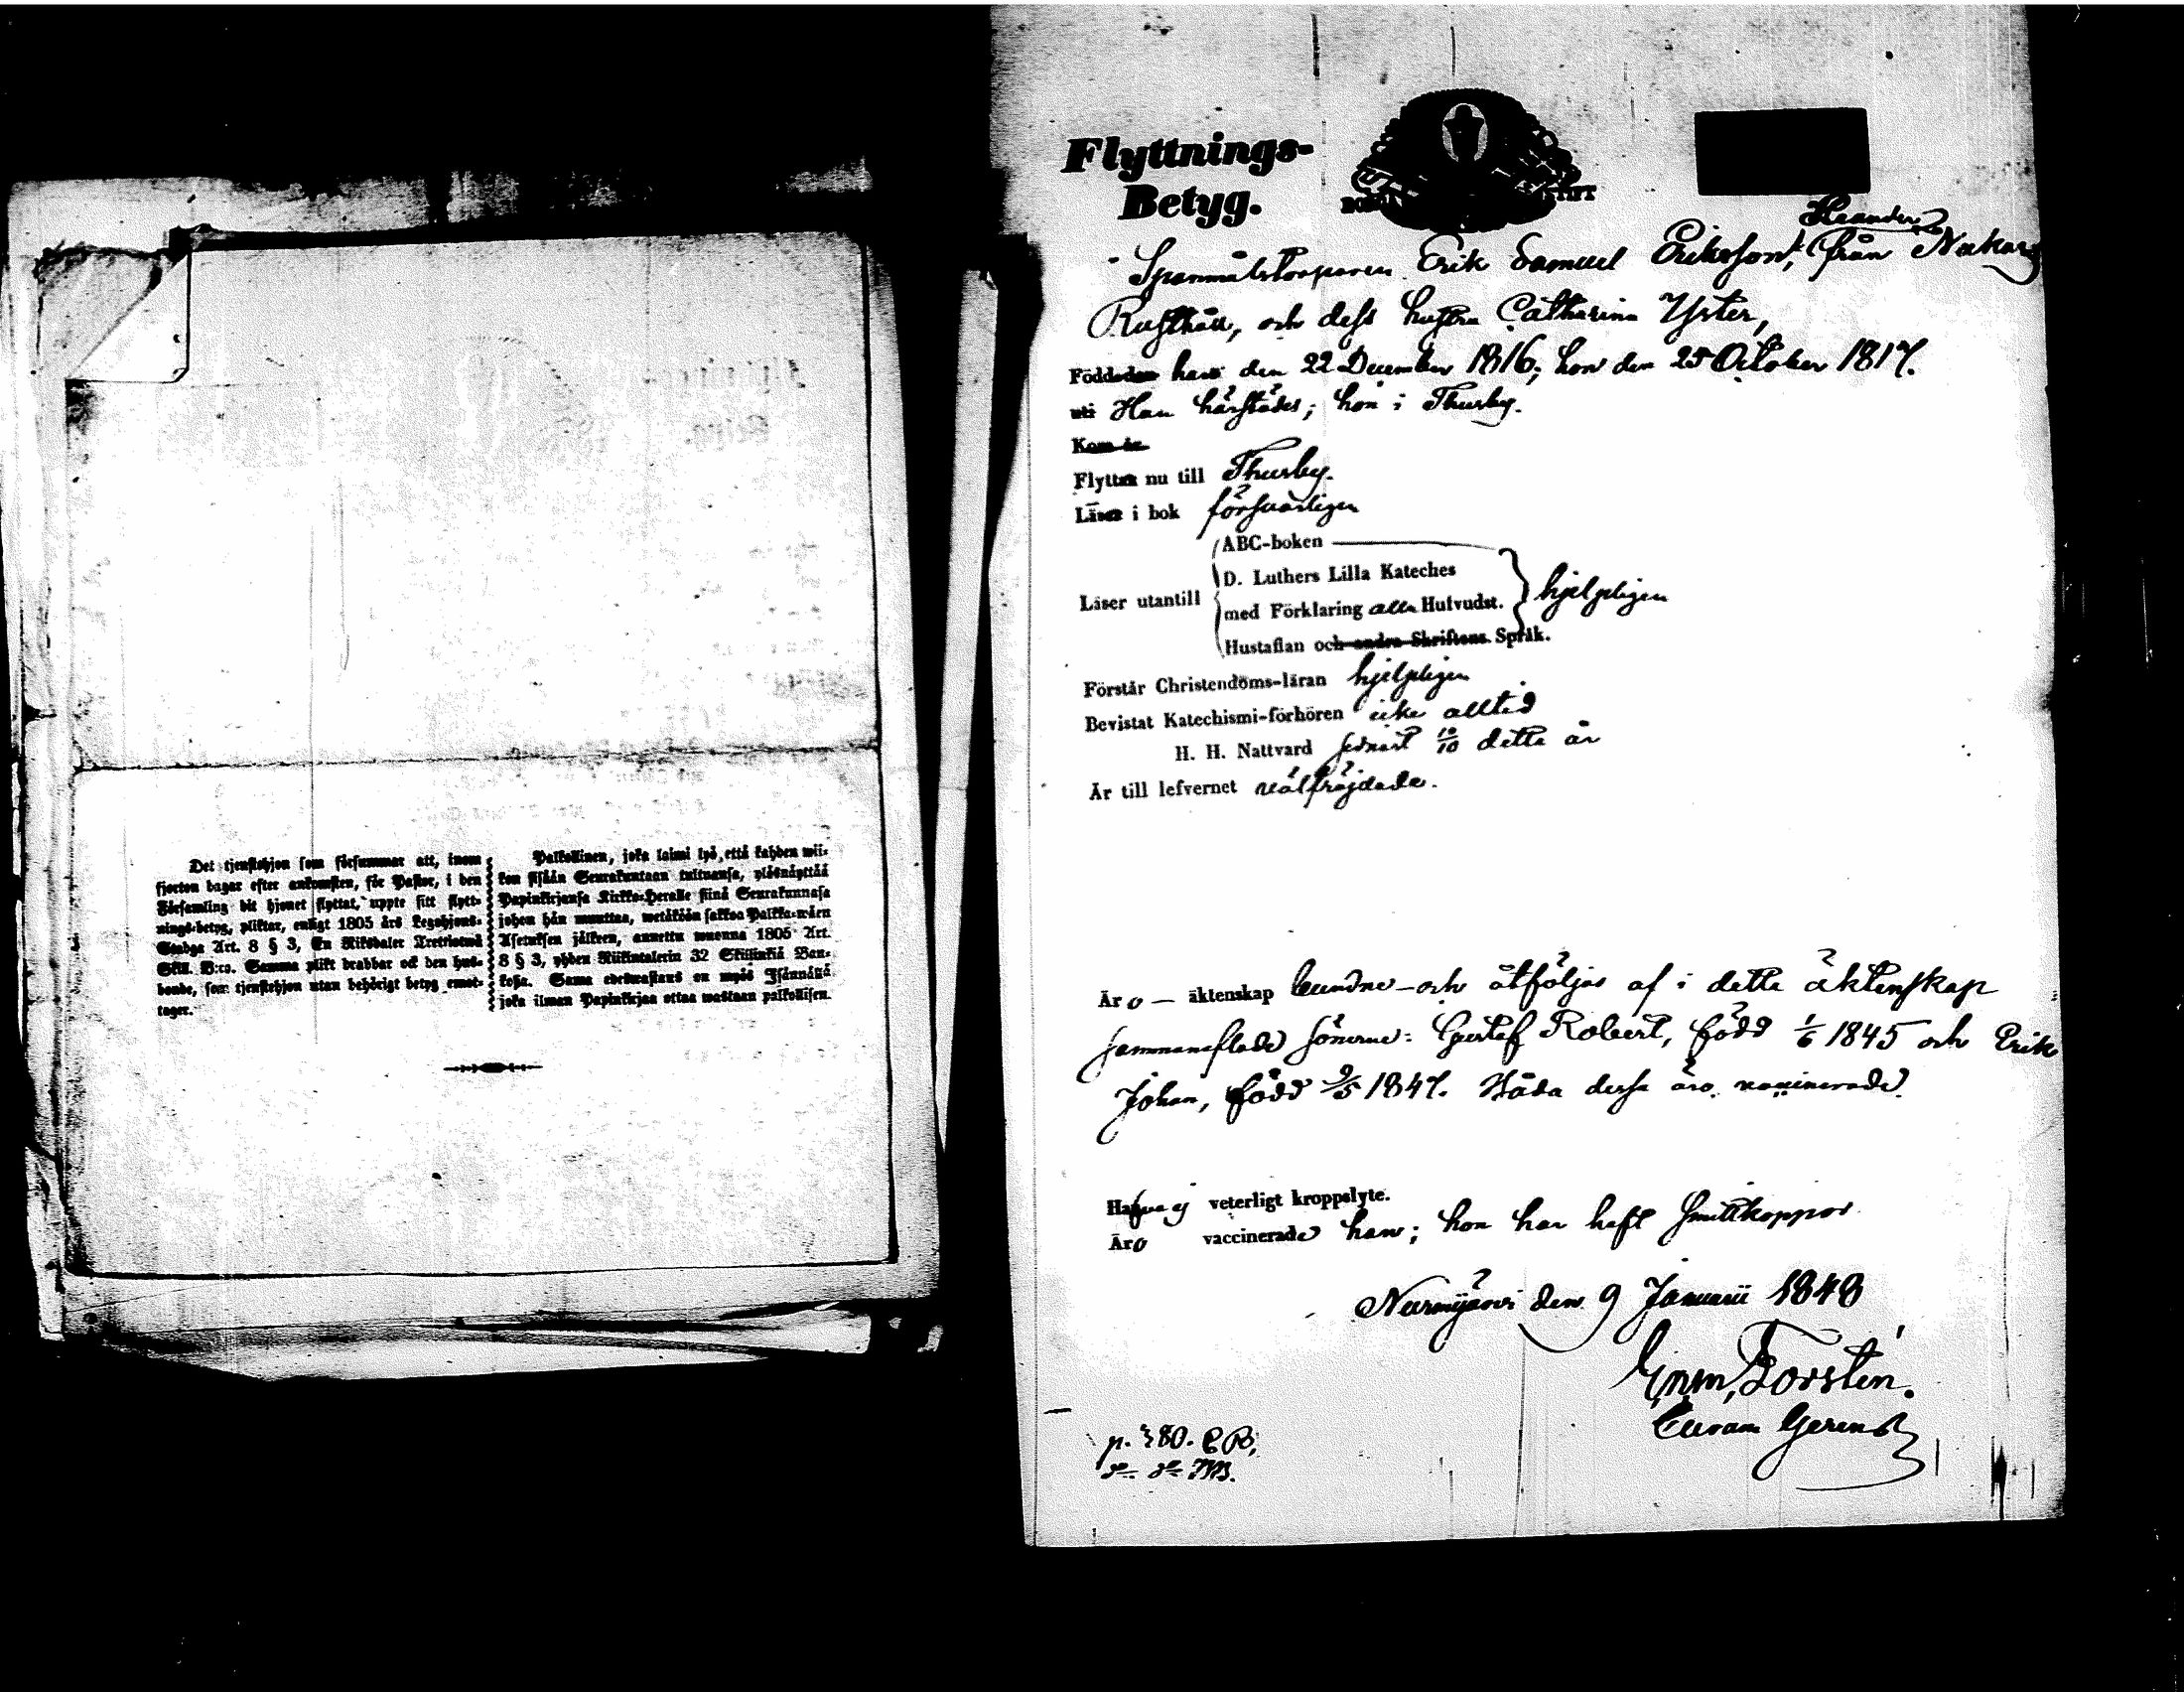 Det tjenstehjon som försummar att, inom
fjorton dagar efter ankomsten, för Pastor, i den
Församling dit hjonet flyttat, uppte sitt flytt-
nings-betyg, pliktar, enligt 1805 års Legohjons-
Stadga Art. 8 § 3, En Riksdaler Trettiotwå
Skill. B:co. Samma plikt drabbar ock den hus-
bonde, som tjenstehjon utan behörigt betyg emot-
tager.
Palkollinen, joka laimi lyö, että kahden wii-
kon sisään Seurakuntaan tultuansa, ylösnäyttää
Papinkirjansa Kirkko-Herralle siinä Seurakunnasa
johon hän muuttaa, wetäköön sakkoa Palkka-wäen
Asetuksen jälkeen, annettu wuonna 1805 Art.
8 § 3, yhden Riikintalerin 32 Skillinkiä Ban-
kosa. Sama edeswastaus on myös Isännällä
joka ilman Papinkirjaa ottaa wastaan palkollisen.
Flyttnings-
Betyg.
BORGÅ STIFT
Spanmålstorparen Erik Samuel Eriksson, från Nukari
Rusthåll, och dess hustru Catharina Yster,
Födde den han den 22 December 1816; hon den 25 October 1817.
uti Han härstädes; hon i Thusby.
Kom år
Flytta nu till Thusby.
Läser i bok försvarligen
ABC-boken
D. Luthers Lilla Kateches
Läser utantill med Förklaring alla Hufvudst. hjelpligen
Hustaflan och andra Skriftens Språk.
Förstår Christendoms-läran hjelpligen
Bevistat Katechismi-förhören icke alltid
H. H. Nattvard sednast 10/10 detta år
Är till lefvernet välfräjdade.
Äro — äktenskap bundne — och åtföljas af i detta äktenskap
sammanaflade sönerne: Gustaf Robert, född 1/6 1845 och Erik
Johan, född 9/5 1847. Båda dessa äro vaccinerade.
Hafva ej veterligt kroppslyte.
Äro vaccinerade han; hon har haft smittkoppor
Nurmijärvi den 9 Januarii 1848
Enm, Forstén.
Curam Gerens
p. 380. CB,